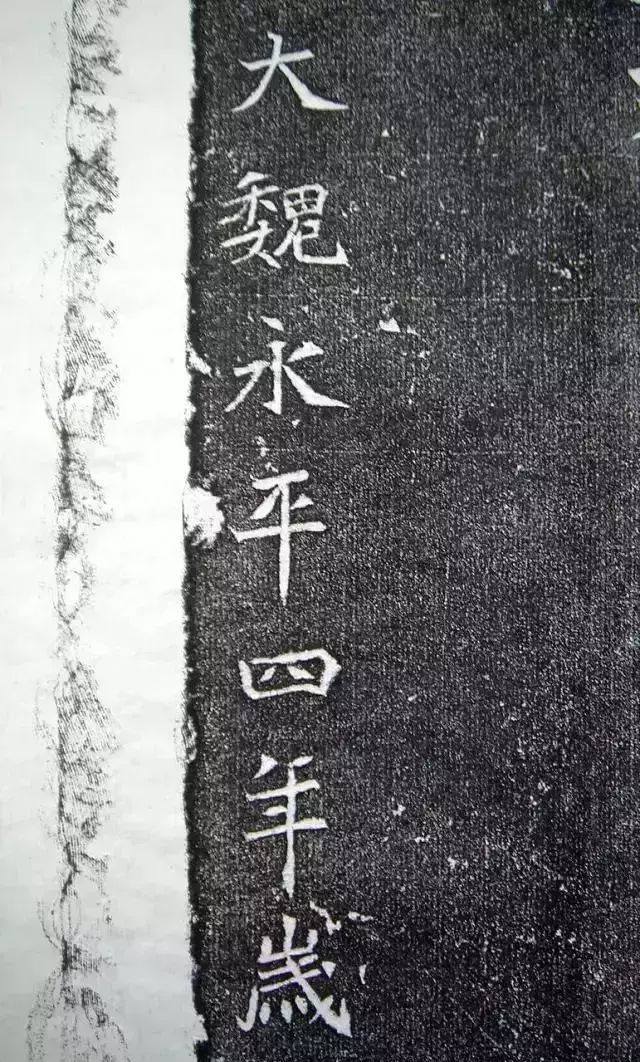 大魏永平四年歲